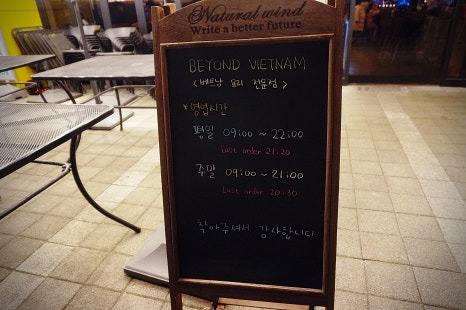 Natural wind
Write a better future
BEYOND VIETNAM
<베트남 요리 전문점>
*영업시간
평일 09:00~22:00
Last order 21:20
주말 09:00~21:00
Last order 20:30
찾아주셔서 감사합니다